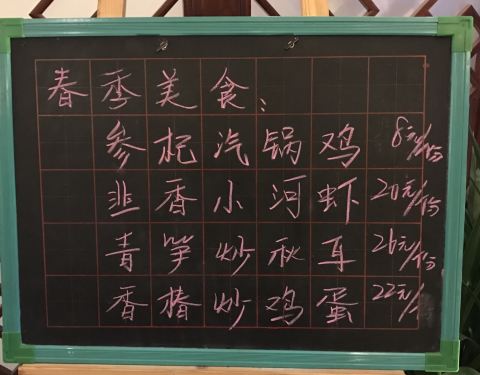 春季美食：
参杞汽锅鸡 8元/份
韭香小河虾 20元/份
青笋炒秋耳 26元/份
香椿炒鸡蛋 22元/